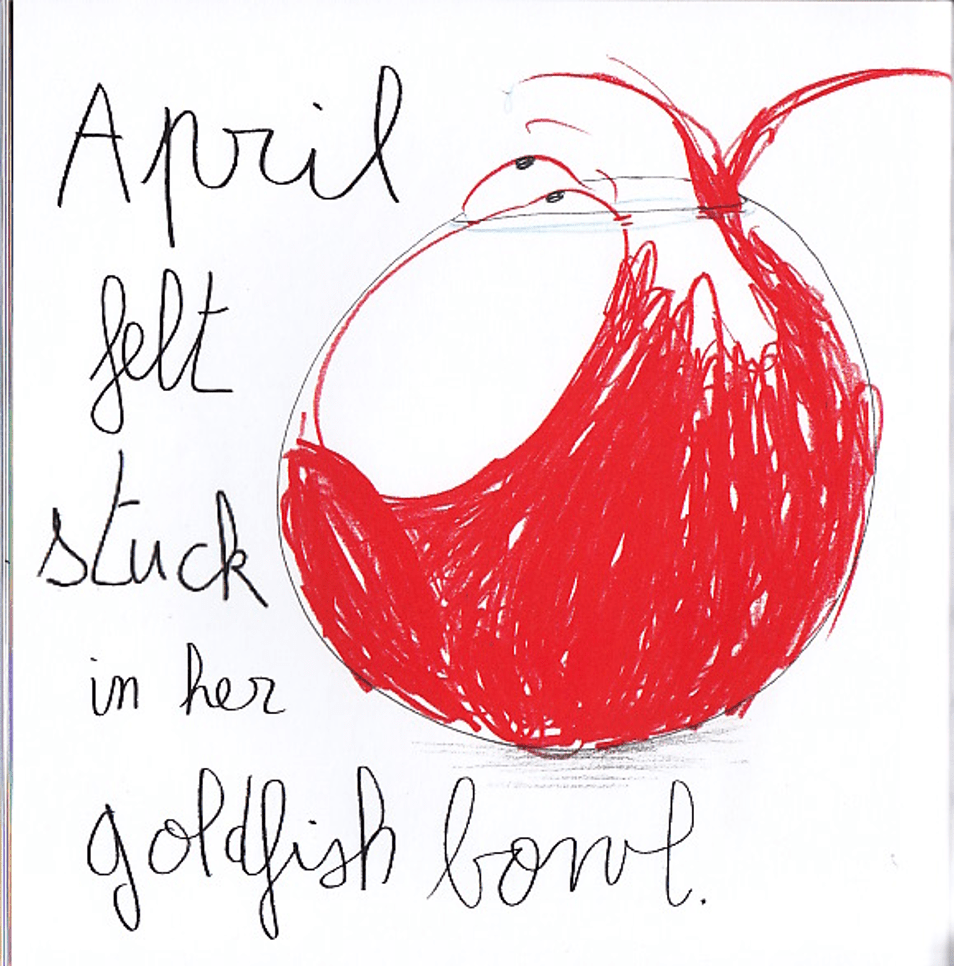 April
felt
stuck
in her
goldfish bowl.